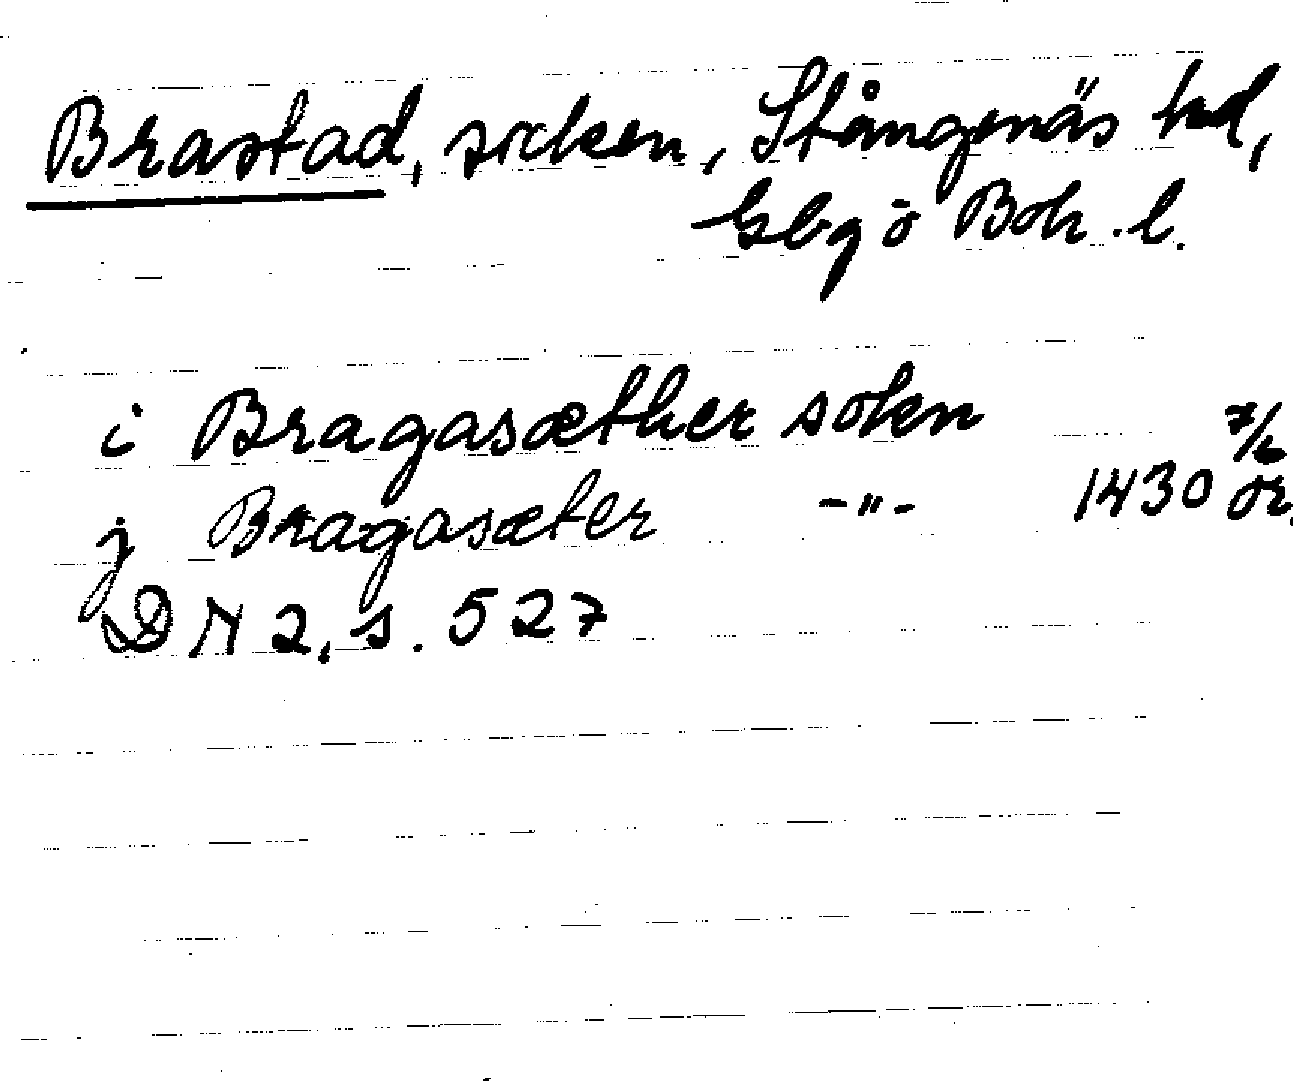 Brastad, socken, Stångenäs hd,
Gbg o Boh. l.
i Bragasæther sokn 7/6
j Bragasæter -"- 1430 or.
DN 2, s. 527